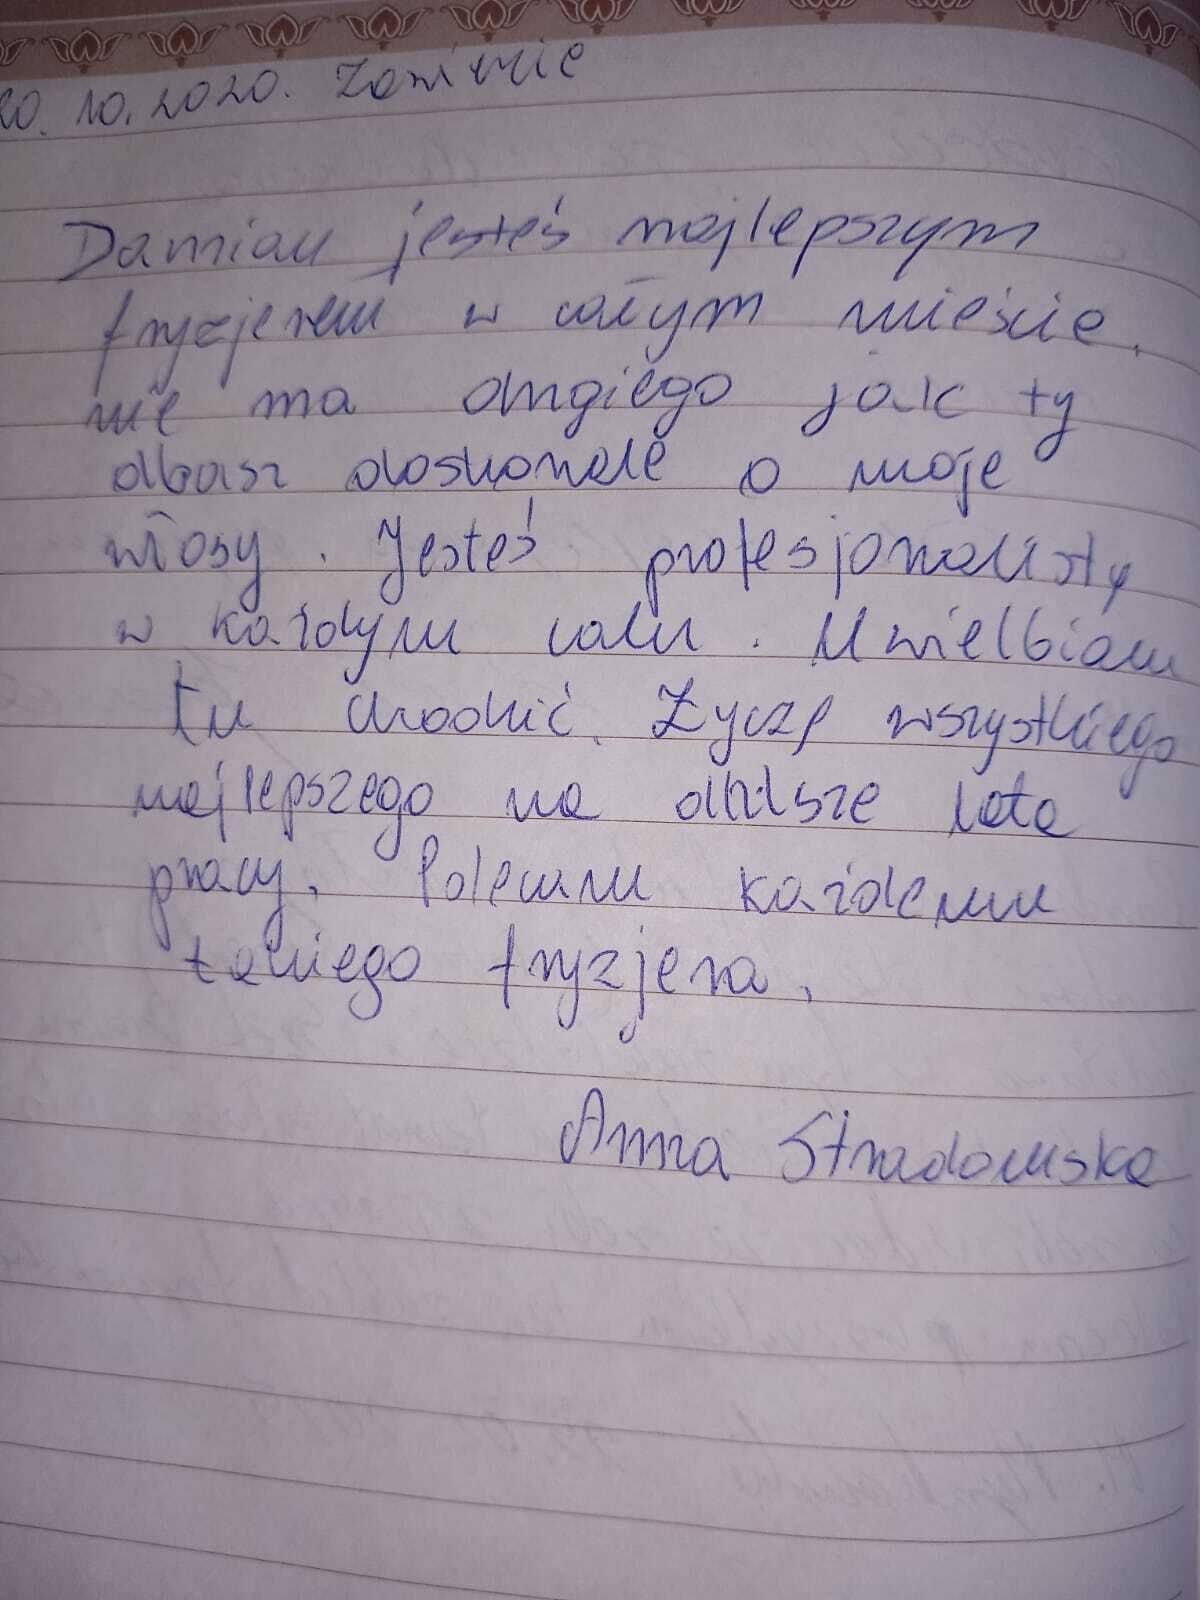 20.10.2020. Zawiercie
Damian jesteś najlepszym
fryzjerem w całym mieście.
nie ma drugiego jak ty
dbasz doskonale o moje
włosy. Jesteś profesjonalistą
w każdym calu. Uwielbiam
tu chodzić. Życzę wszystkiego
najlepszego na dalsze lata
pracy. Polecam każdemu
takiego fryzjera.
Anna Stradowska